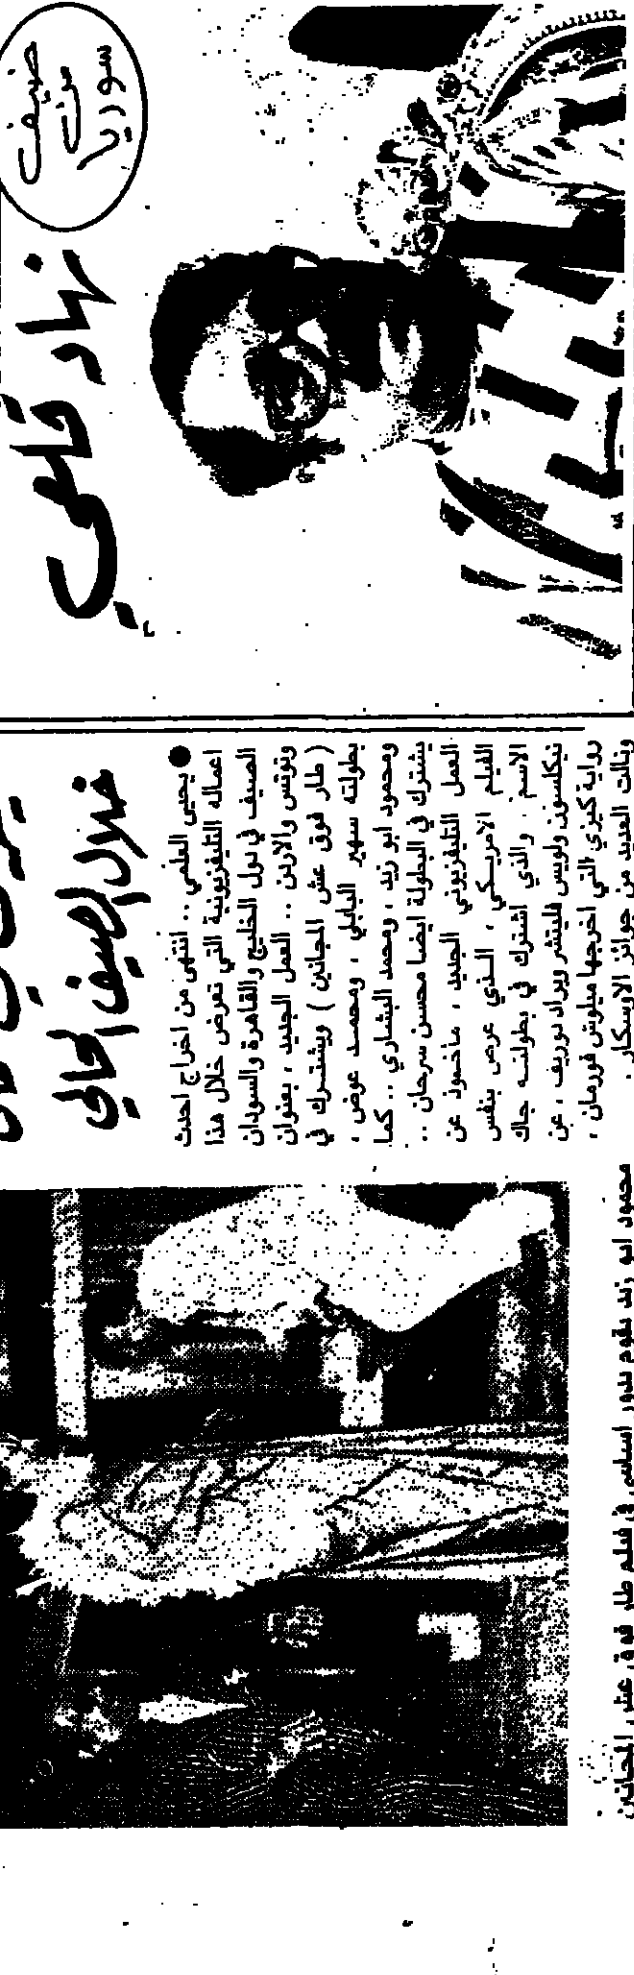 ضيف
من
سوريا
نهاد قلعي
خلال الصيف الحالي
● يحيى العلمي .. انتهى من اخراج احدث
اعماله التليفزيونية التي تعرض خلال هذا
الصيف في دول الخليج والقاهرة والسودان
وتونس والاردن .. العمل الجديد ، بعنوان
( طار فوق عش المجانين ) ويشترك في
بطولته سهير البابلي ، ومحمد عوض ،
ومحمود ابو زيد ، ومحمد الشاري .. كما
يشترك في البطولة ايضا محسن سرحان ..
العمل التليفزيوني الجديد ، ماخوذ عن
الفيلم الامريكي ، الذي عرض بنفس
الاسم ، والذي اشترك في بطولته جاك
نيكلسون ولويس فليتشر وبراد دوريف ، عن
رواية كيزي التي اخرجها ميلوش فورمان ،
ونالت العديد من جوائز الاوسكار .
محمود ابو زيد يقوم بدور اساسي في فيلم طار فوق عش المجانين